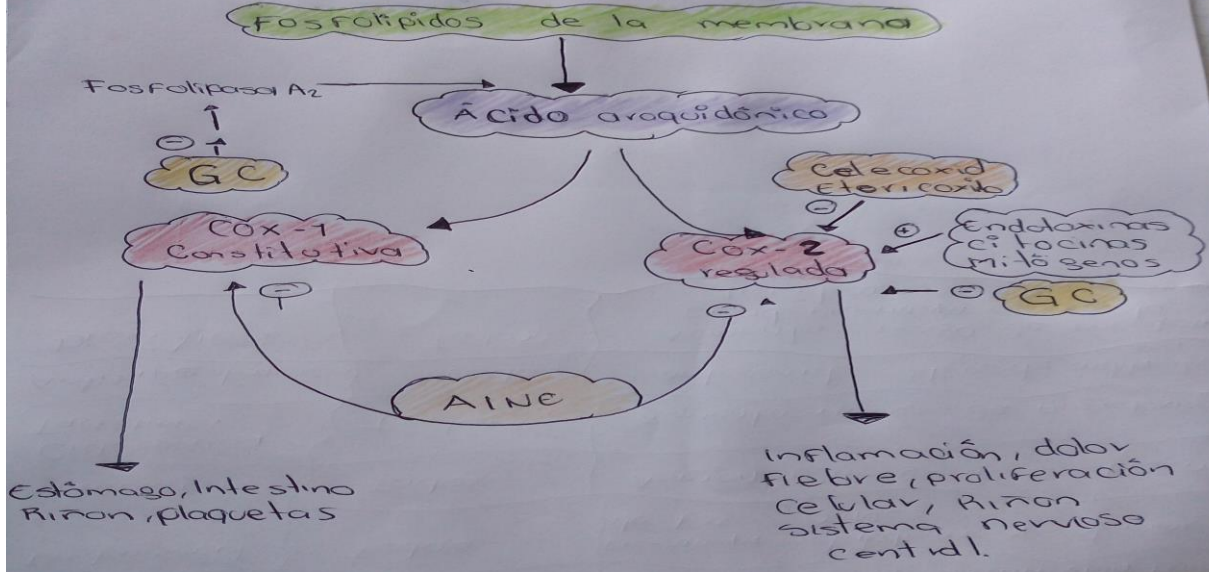 Fosfolípidos de la membrana
Fosfolipasa A2
Ácido araquidónico
GC
Celecoxid
Etericoxib
COX-1
Constitutiva
COX-2
regulada
Endotoxinas
citocinas
mitógenos
GC
AINE
Estómago, Intestino
Riñon, plaquetas
inflamación, dolor
fiebre, proliferación
celular, Riñon
sistema nervioso
central.